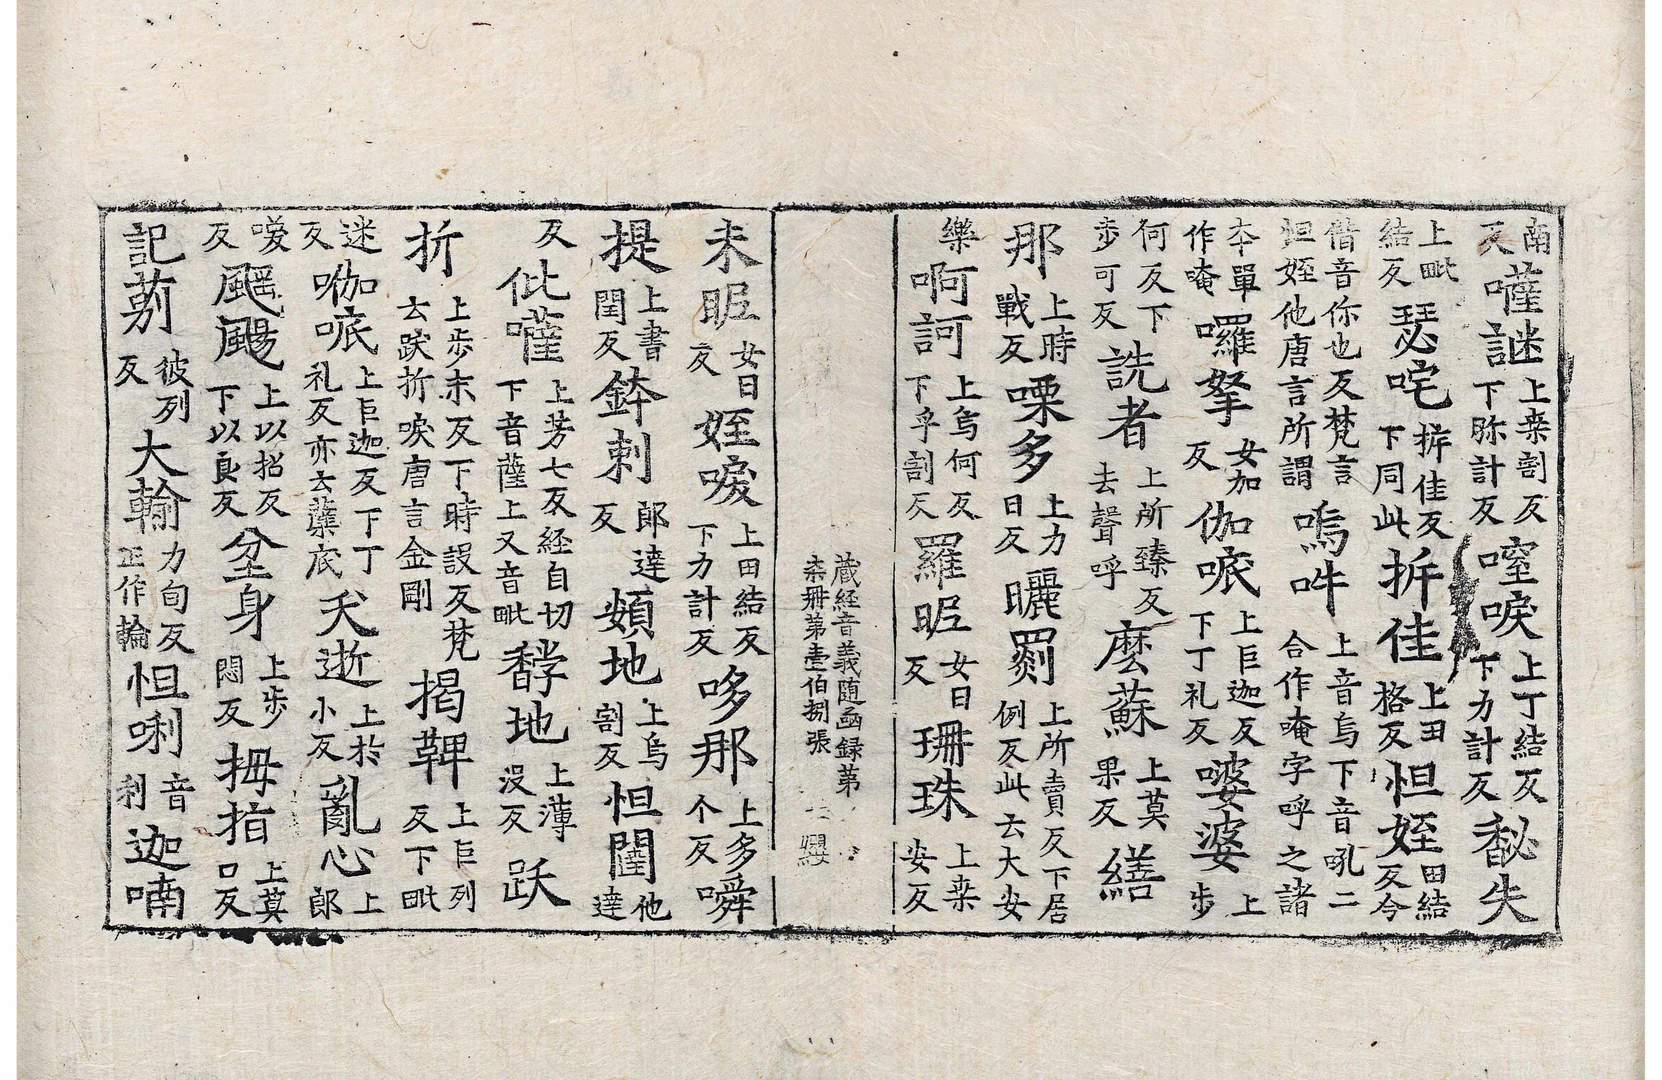 南反㘕謎上桒割反下眎計反啌唳上丁結反下力計反秘失
上毗結反瑟咤坼佳反下同此坼佳上田格反怛姪田結反今
借音你也反梵言怛姪他唐言所謂嗚吽上音烏下音吼二合作唵字呼之諸
本單作唵囉拏女加反伽㡳上巨迦反下丁礼反婆婆上步
何反下步可反詵者上所臻反去聲呼麽蘇上莫果反繕
那上時戰反㗚多上力日反曬罽上所賣反下居例反此云大安
樂啊訶上烏何反下乎割反羅昵女日反珊珠上桒安反
蔵経音義随函録苐
桒冊苐壹伯捌張
纓
末昵女日反姪唳上田結反下力計反哆那上多个反瞬
提上書閏反鉢剌郎達反頞地上烏割反怛闥他達
反㘕上芳七反経自切下音薩上又音毗馞地上薄没反趺
折上步末反下時誤反梵云跋折唳唐言金剛揭鞞上巨列反下毗
迷反㘕㡳上巨迦反下丁礼反亦云蘖㡳夭逝上於小反亂心上郎
噯反颻颺上以招反下以良反坌身上步悶反拇指上莫口反
記莂彼列反大輪力旬反正作輪怛唎音利迦喃